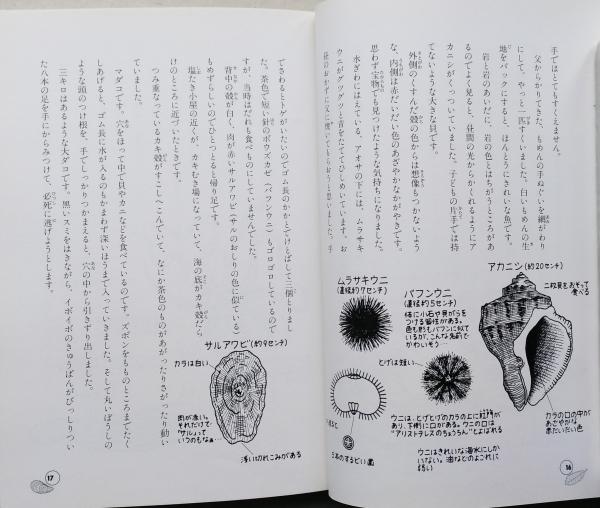 手ではとてもすくえません。
父からかりてきた、もめんの手ぬぐいを網がわり
にして、やっと一匹すくいました。白いもめんの生
地をバックにすると、ほんとうにきれいな魚です。
岩と岩のあいだに、岩の色とはちがうところがあ
るのでよく見ると、昼間の光からかくれるようにア
カニシがくっついていました。子どもの片手では持
てないような大きな貝です。
外側のくすんだ殻の色からは想像もつかないよう
な、内側は赤だいだい色のあざやかなかがやきです。
思わず宝物でも見つけたような気持ちになりました。
水ぎわにはえている、アオサの下には、ムラサキ
ウニがグツグツと音をたててひしめいています。お
昼のおかずに父に焼いてもらおうと思いました。手
アカニシ(約20センチ)
二枚貝をおそって
食べる
カラの口の中が
あざやかな
赤だいだい色
バフンウニ
(直径約5センチ)
体に小石や貝がらを
つける習性がある。
色も形もバフンに似てい
るが、こんな名前で
かわいそう
とげは短い
ムラサキウニ
(直径約7センチ)
ウニは、とげとげのカラの上に肛門が
あり、下側に口がある。ウニの口は
“アリストテレスのちょうちん”とよばれる
5本のするどい歯
ウニはきれいな海水にしか
いない。油などのよごれに
弱い
16
でさわるとトゲがいたいのでゴム長のかかとでけとばして三個とりまし
た。茶色で短い針のボウズカゼ(バフンウニ)もゴロゴロしているので
すが、当時はだれも食べものにしていませんでした。
背中の殻が白く、肉が赤いサルアワビ(サルのおしりの色に似ている)
もめずらしいのでひとつとると帰り足です。
塩たき小屋の近くが、カキむき場になっていて、海の底がカキ殻だら
けのところに近づいたときです。
つみ重なっているカキ殻がすこしへこんでいて、なにか茶色のものがあがったりさがったり動い
ていました。
マダコです。穴をほって中で貝やカニなどを食べているのです。ズボンをもものところまでたく
しあげると、ゴム長に水が入るのもかまわず深いほうまで入っていきました。そして丸いぼうしの
ような頭のつけ根を、手でしっかりつかまえると、穴の中から引きずり出しました。
三キロはあるような大ダコです。黒いスミをはきながら、イボイボのきゅうばんがびっしりつい
た八本の足を手にからみつけて、必死に逃げようとします。
サルアワビ(約9センチ)
カラは白い
肉が赤い。
それだけで
“サル”って
いうのもなぁ
浅い切れこみがある
17